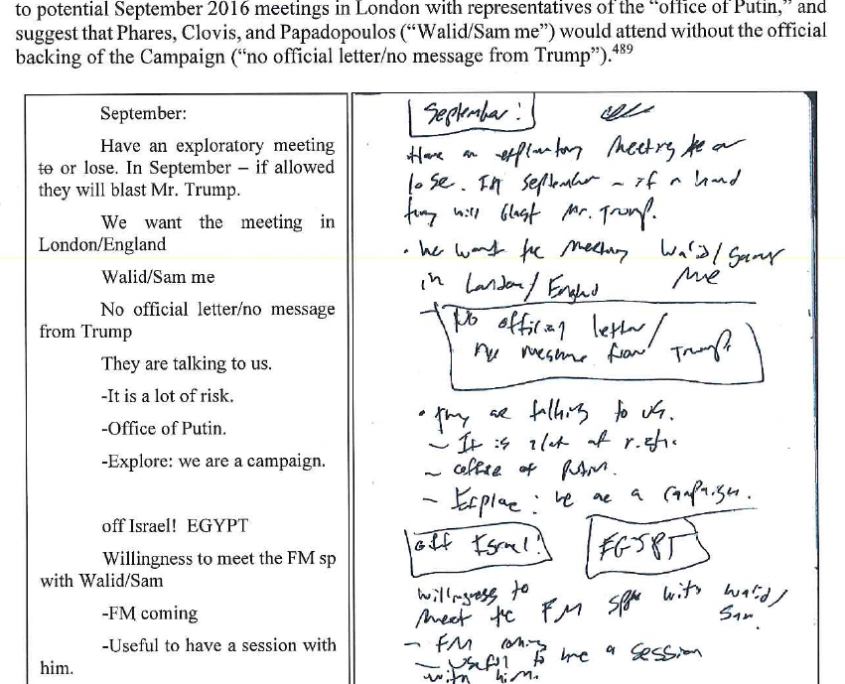 to potential September 2016 meetings in London with representatives of the “office of Putin,” and
suggest that Phares, Clovis, and Papadopoulos (“Walid/Sam me”) would attend without the official
backing of the Campaign (“no official letter/no message from Trump”).489
September:
Have an exploratory meeting
to or lose. In September – if allowed
they will blast Mr. Trump.
We want the meeting in
London/England
Walid/Sam me
No official letter/no message
from Trump
They are talking to us.
-It is a lot of risk.
-Office of Putin.
-Explore: we are a campaign.
off Israel! EGYPT
Willingness to meet the FM sp
with Walid/Sam
-FM coming
-Useful to have a session with
him.
September:
Have an exploratory meeting to or
lose. In September – if allowed
they will blast Mr. Trump.
• We want the meeting Walid/Sam
in London/England me
No official letter/
no message from Trump
• They are talking to us.
– It is a lot of risk.
– office of Putin.
– Explore: we are a campaign.
off Israel! EGYPT
Willingness to
meet the FM sp with Walid/
Sam
– FM coming
– Useful to have a session
with him.